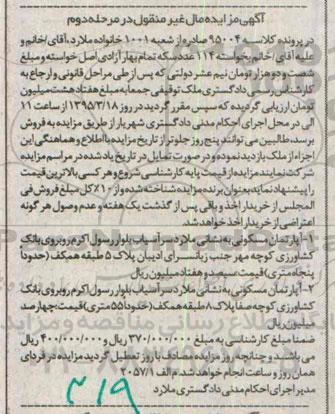 آگهی مزایده مال غیر منقول در مرحله دوم
در پرونده کلاسه ۹۵۰۰۴ صادره از شعبه ۱۰۰۱ خانواده ملارد، آقای/خانم و
علیه آقای/خانم بخواسته ۱۱۴ عدد سکه تمام بهار آزادی اصل خواسته و مبلغ
شصت و دو هزار تومان نیم عشر دولتی که پس از طی مراحل قانونی و ارجاع به
کارشناس رسمی دادگستری ملک توقیفی جمعا به مبلغ هفتاد هشت میلیون
تومان ارزیابی گردیده که سپس مقرر گردید در روز ۱۳۹۵/۳/۱۸ از ساعت ۱۱
الی در محل اجرای احکام مدنی دادگستری شهریار از طریق مزایده به فروش
برسد، طالبین می توانند پنج روز جلوتر از تاریخ مزایده با اطلاع و هماهنگی این
اجرا از ملک بازدید نموده و در صورت تمایل در تاریخ یاد شده در مراسم مزایده
شرکت نمایند مزایده از قیمت پایه کارشناسی شروع و هر کسی بالاترین قیمت
را پیشنهاد نماید بعنوان برنده مزایده شناخته شده و از ۱۰٪ کل مبلغ فروش فی
المجلس از خریدار اخذ و باقی پس از گذشت یک هفته و عدم وصول هر گونه
اعتراضی از خریدار اخذ خواهد شد.
۱- آپارتمان مسکونی به نشانی ملارد سر آسیاب بلوار رسول اکرم روبروی بانک
کشاورزی کوچه مهر جنب زبانسرای ادیبان پلاک ۵ طبقه همکف (حدودا
پنجاه متری) قیمت سیصد و هفتاد میلیون ریال
۲- آپارتمان مسکونی به نشانی ملارد سر آسیاب بلوار رسول اکرم روبروی بانک
کشاورزی کوچه صفا پلاک ۸ طبقه همکف (حدودا ۵۵ متری) قیمت چهارصد
میلیون ریال
ضمنا مبلغ کارشناسی به مبلغ ۳۷۰/۰۰۰/۰۰۰ ریال و ۴۰۰/۰۰۰/۰۰۰ ریال
می باشد و چنانچه روز مزایده مصادف با روز تعطیل گردید مزایده در فردای
همان روز و ساعت انجام خواهد شد. م الف ۲۰۵۷/۱
مدیر اجرای احکام مدنی دادگستری ملارد
۳۱۹